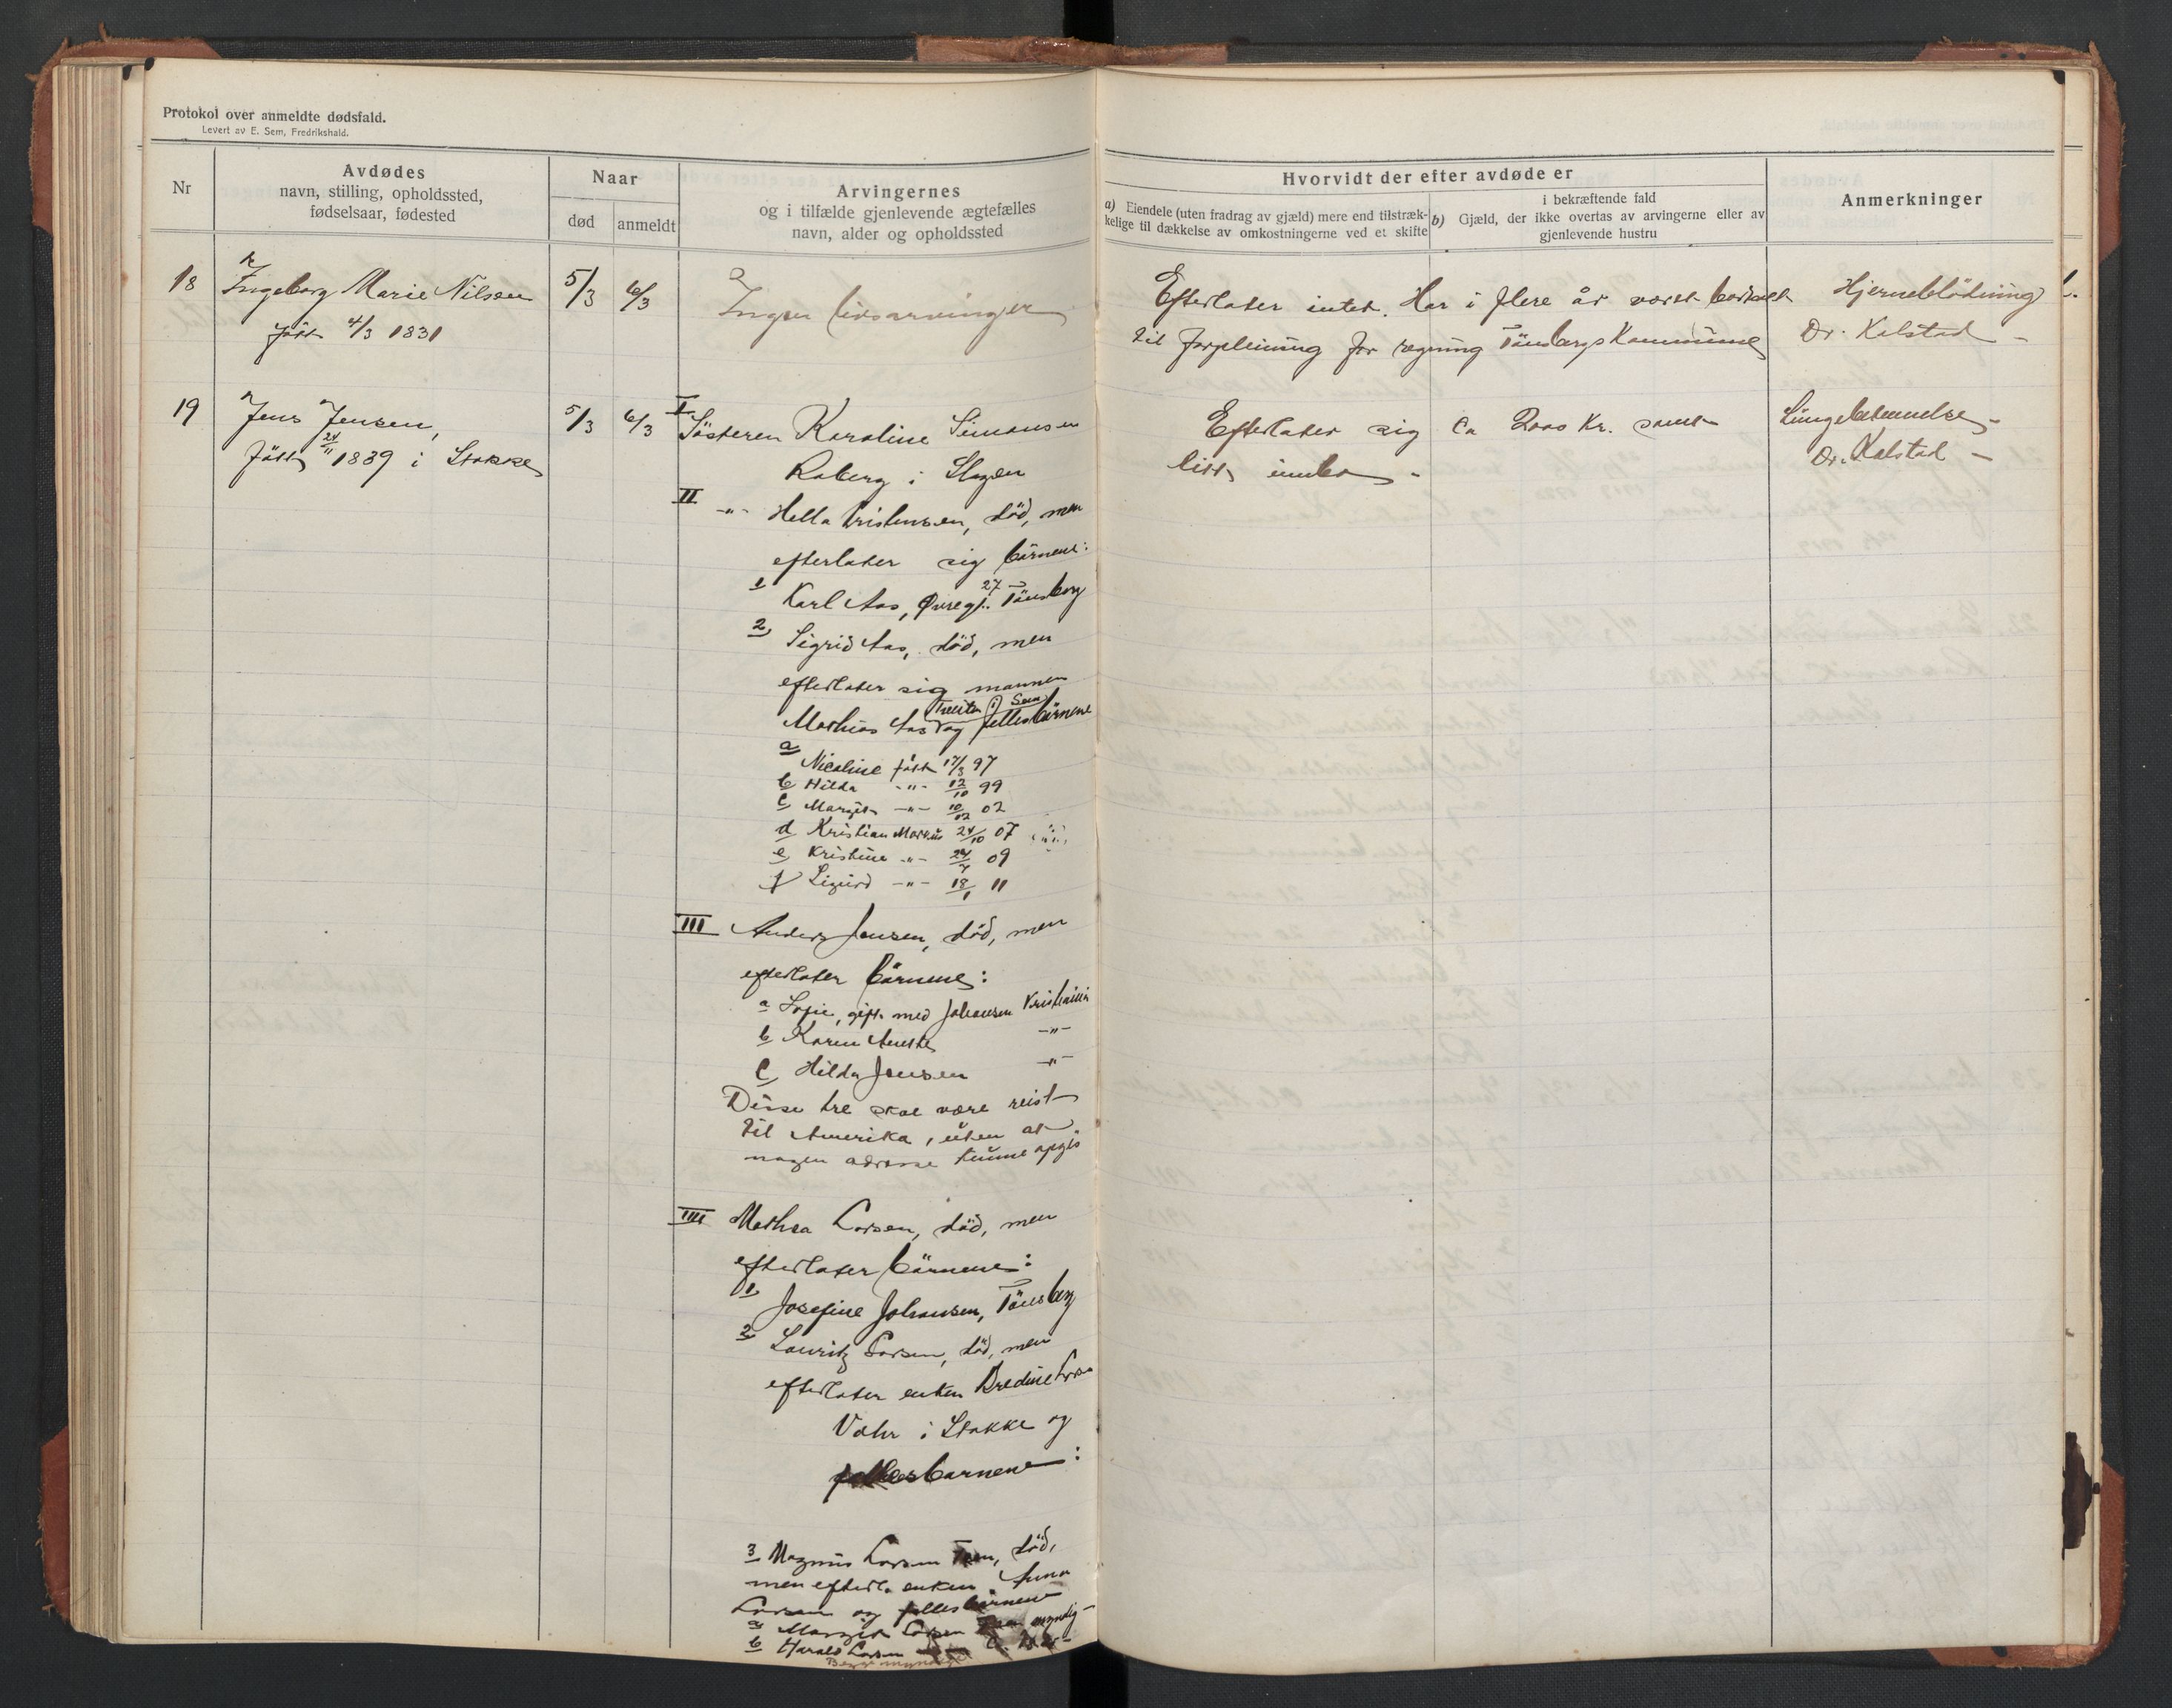 Protokol over anmeldte dødsfald.
Levert av E. Sem, Fredrikshald.
Nr
Avdødes
navn, stilling, opholdssted,
fødselsaar, fødested
Naar
død
anmeldt
Arvingernes
og i tilfælde gjenlevende ægtefælles
navn, alder og opholdssted
Hvorvidt der efter avdøde er
a) Eiendele (uten fradrag av gjæld) mere end tilstræk-
kelige til dækkelse av omkostningerne ved et skifte
i bekræftende fald
b) Gjæld, der ikke overtas av arvingerne eller av
gjenlevende hustru
Anmerkninger
18
Ingeborg Marie Nilsen
født 4/3 1831
5/3
6/3
Ingen livsarvinger
Efterlater intet. Har i flere år vært bortsat
til forpleining for regning Tönsbergs Kommune
Hjerneblödning
Dr. Kalstad -
19
Jens Jensen,
født 24/11 1839 i Stokke
5/3
6/3
I
Søsteren Karoline Simonsen
Raberg i Slagen
II -"- Hella Kristensen, död, men
efterlater sig börnene:
1 Karl Aas, Øvregt. 27 Tönsberg
2 Sigrid Aas, död, men
efterlater sig mannen
i Sem
Mathias Aas og fellesbörnene
a Nicoline født 17/3 97
b Hilda -"- 12/10 99
c Margit -"- 10/12 02
d Kristian Markus 24/10 07
e Kristine -"- 24/7 09
f Sigurd -"- 18/1 11
III Anders Jensen, död, men
efterlater börnene:
a Sofie, gift med Johansen Kristiania
b Karen Anette -"-
c Hilda Jensen -"-
Disse tre skal være reist
til Amerika, uten at
nogen adresse kunne opgis
IIII Mathea Larsen, död, men
efterlater börnene:
1 Josefine Johansen, Tönsberg
2 Lauritz Larsen, död, men
efterlater enken Bredine Larsen
i Stokke og
fellesbarnene:
3 Magnus Larsen död,
men efterla enken Anna
Larsen og fellesbörnene
a Margit Larsen myndig
b Harald Larsen
Begge myndige
Efterlater sig ca 2000 Kr. samt
litt innbo -
Lungebetennelse -
Dr. Kalstad -